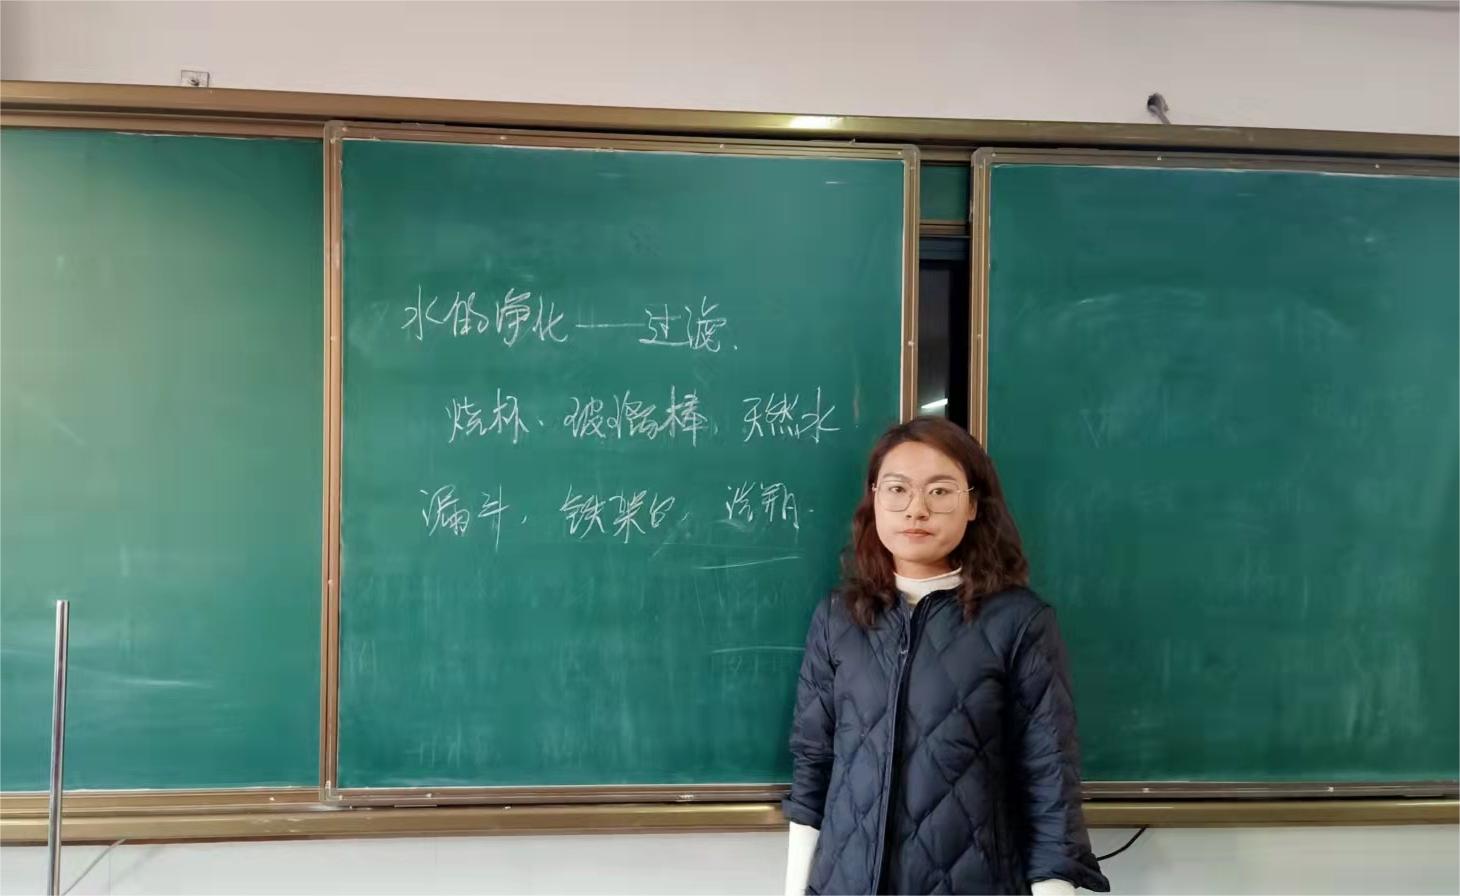 水的净化——过滤.
烧杯、玻璃棒、天然水
漏斗, 铁架台,